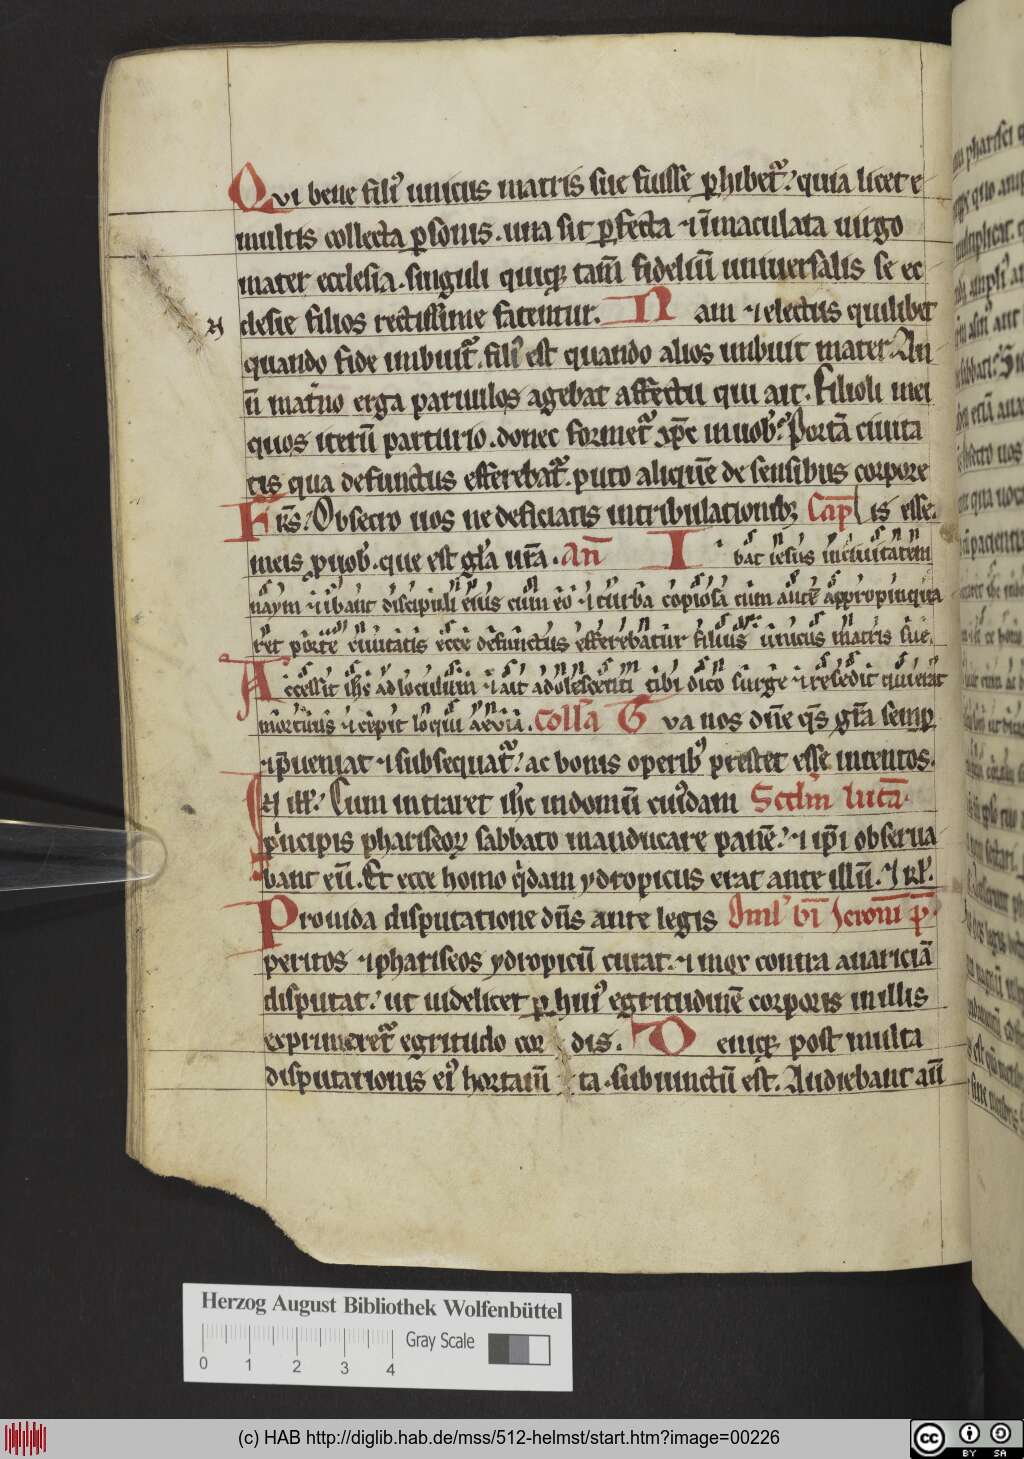 Qvi bene fili᷒ unicus matris sue fuisse ꝑhibet᷑. quia licet e
multis collecta ꝑsonis. una sit ꝑfecta ⁊ īmaculata uirgo
mater ecclesia. singuli quiqꝫ tam̄ fideliū uniuersalis se ec
clesie filios rectissime fatentur. Nam ⁊ electus quilibet
quando fide imbuit᷑. fili᷒ est quando alios imbuit mater. An
n̄ mat̾no erga paruulos agebat affectu qui ait. Filioli mei
quos iterū parturio. donec formet᷑ xp̄c in uob᷒. Portā ciuita
tis qua defunctus efferebat᷑. puto aliquē de sensibus corpore
Fr̄s. Obsecro uos ne deficiatis in tribulationibꝫ Cap̄ is esse.
meis ꝓ uob᷒. que est gl̄a ur̄a. An̄ Ibat iesus in ciuitatem
naym ⁊ ibant discipuli eius cum eo ⁊ turba copiosa cum autē appropinqua
ret portē ciuitatis ecce defunctus efferebatur filius unicus matris sue.
Accessit ih̄c ad loculum ⁊ ait adolescenti tibi dico surge ⁊ resedit qui erat
mortuus ⁊ cepit loqui aeuia. Coll̄a Gva nos dn̄e qs̄ gr̄a semꝑ
⁊ p̄ueniat ⁊ subsequat᷑. ac bonis operib᷒ prestet esse intentos.
In ill̄. Cum intraret ih̄c in domū cui᷒dam Scd̄m lucā.
principis phariseoꝝ sabbato manducare panē. ⁊ ip̄i obserua
bant eū. Et ecce homo q̇dam ydropicus erat ante illū. ⁊ rl̄.
Prouida disputatione dn̄s ante legis Oml᷒ bī Ieronī p̄.
peritos ⁊ phariseos ydropicū curat. ⁊ mox contra auariciā
disputat. ut uidelicet ꝑ hui᷒ egritudinē corporis in illis
exprimeret᷑ egritudo cor dis. Deniqꝫ post multa
disputationis ei᷒ hortam̄ ta. subiunctū est. Audiebant aūt
Herzog August Bibliothek Wolfenbüttel
Gray Scale
0 1 2 3 4
(c) HAB http://diglib.hab.de/mss/512-helmst/start.htm?image=00226
cc BY SA